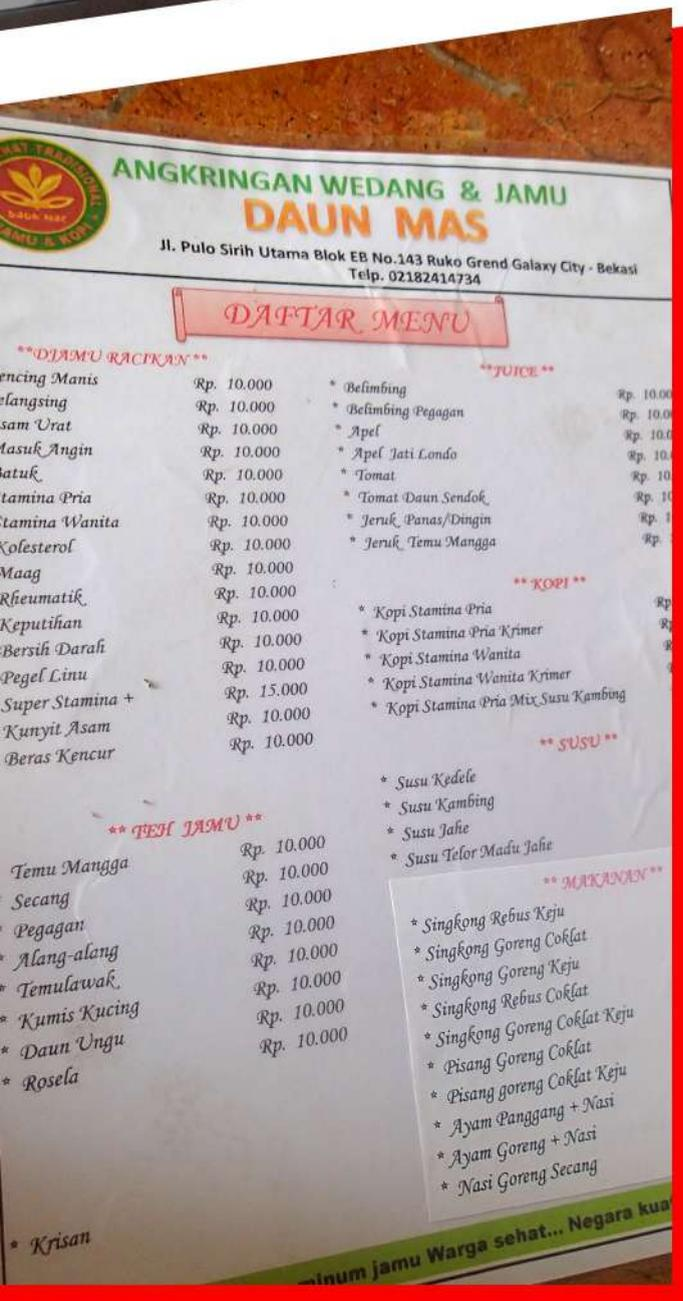 ANGKRINGAN WEDANG & JAMU
DAUN MAS
Jl. Pulo Sirih Utama Blok EB No.143 Ruko Grend Galaxy City - Bekasi
Telp. 02182414734
DAFTAR MENU
**DJAMU RACIKAN**
encing Manis Rp. 10.000
elangsing Rp. 10.000
sam Urat Rp. 10.000
Masuk Angin Rp. 10.000
Batuk Rp. 10.000
tamina Pria Rp. 10.000
tamina Wanita Rp. 10.000
Kolesterol Rp. 10.000
Maag Rp. 10.000
Rheumatik Rp. 10.000
Keputihan Rp. 10.000
Bersih Darah Rp. 10.000
Pegel Linu Rp. 10.000
Super Stamina + Rp. 15.000
Kunyit Asam Rp. 10.000
Beras Kencur Rp. 10.000
** TEH JAMU **
Temu Mangga Rp. 10.000
Secang Rp. 10.000
* Pegagan Rp. 10.000
* Alang-alang Rp. 10.000
* Temulawak Rp. 10.000
* Kumis Kucing Rp. 10.000
* Daun Ungu Rp. 10.000
* Rosela Rp. 10.000
* Krisan
**JUICE**
* Belimbing Rp. 10.00
* Belimbing Pegagan Rp. 10.0
* Apel Rp. 10.0
* Apel Jati Londo Rp. 10.
* Tomat Rp. 10
* Tomat Daun Sendok Rp. 10
* Jeruk Panas/Dingin Rp. 1
* Jeruk Temu Mangga Rp.
** KOPI **
* Kopi Stamina Pria Rp
* Kopi Stamina Pria Krimer
* Kopi Stamina Wanita
* Kopi Stamina Wanita Krimer
* Kopi Stamina Pria Mix Susu Kambing
** SUSU **
* Susu Kedele
* Susu Kambing
* Susu Jahe
* Susu Telor Madu Jahe
** MAKANAN **
* Singkong Rebus Keju
* Singkong Goreng Coklat
* Singkong Goreng Keju
* Singkong Rebus Coklat
* Singkong Goreng Coklat Keju
* Pisang Goreng Coklat
* Pisang goreng Coklat Keju
* Ayam Panggang + Nasi
* Ayam Goreng + Nasi
* Nasi Goreng Secang
minum jamu Warga sehat... Negara kua